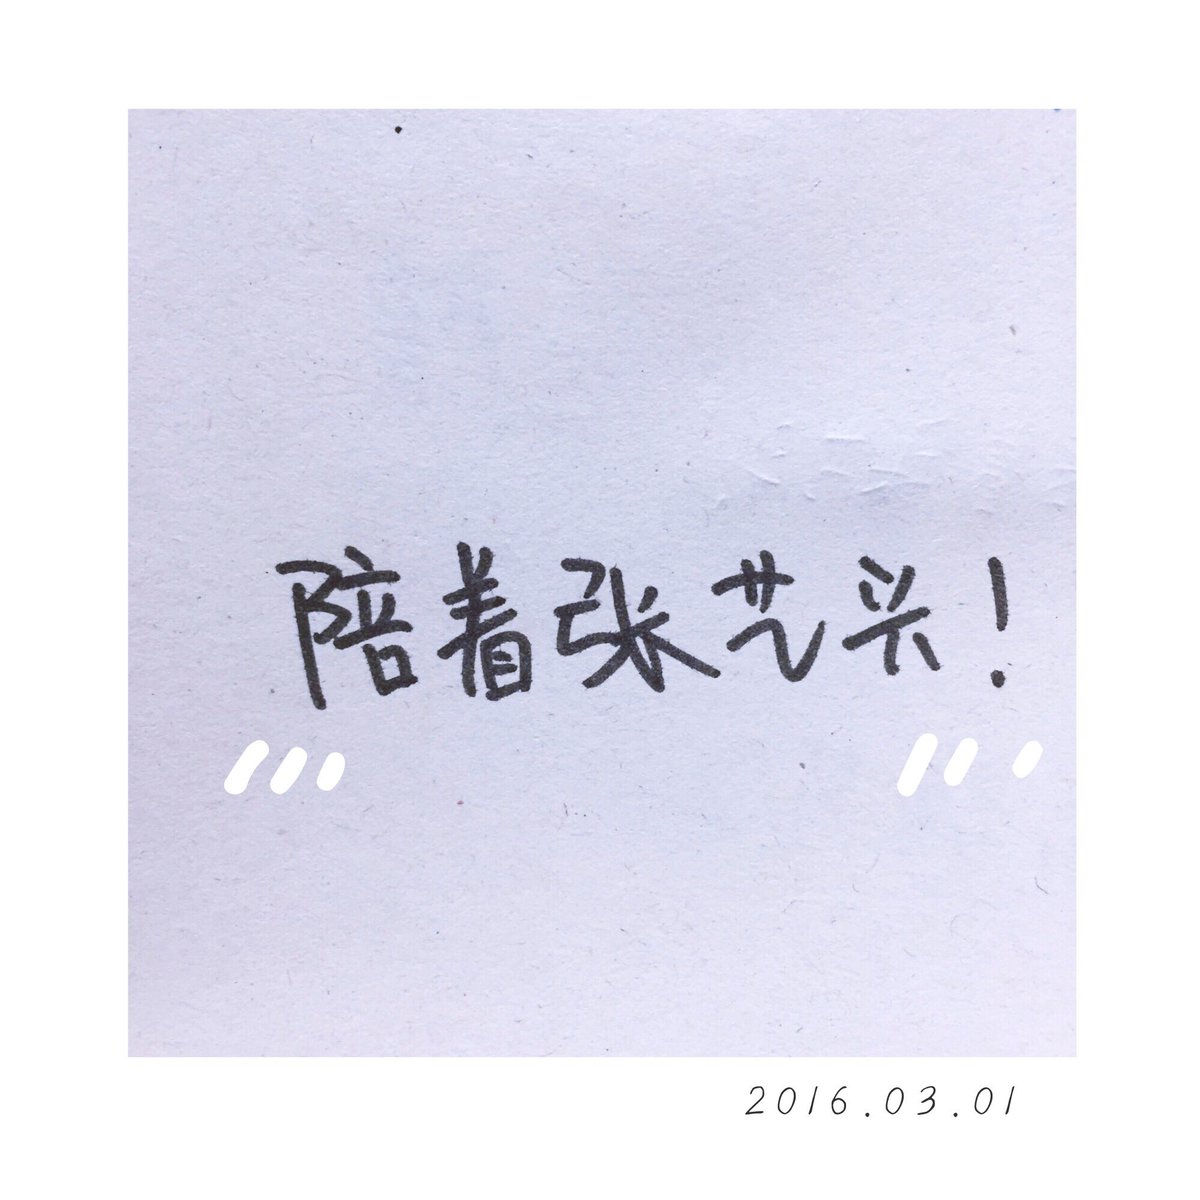 陪着张艺兴！
2016.03.01